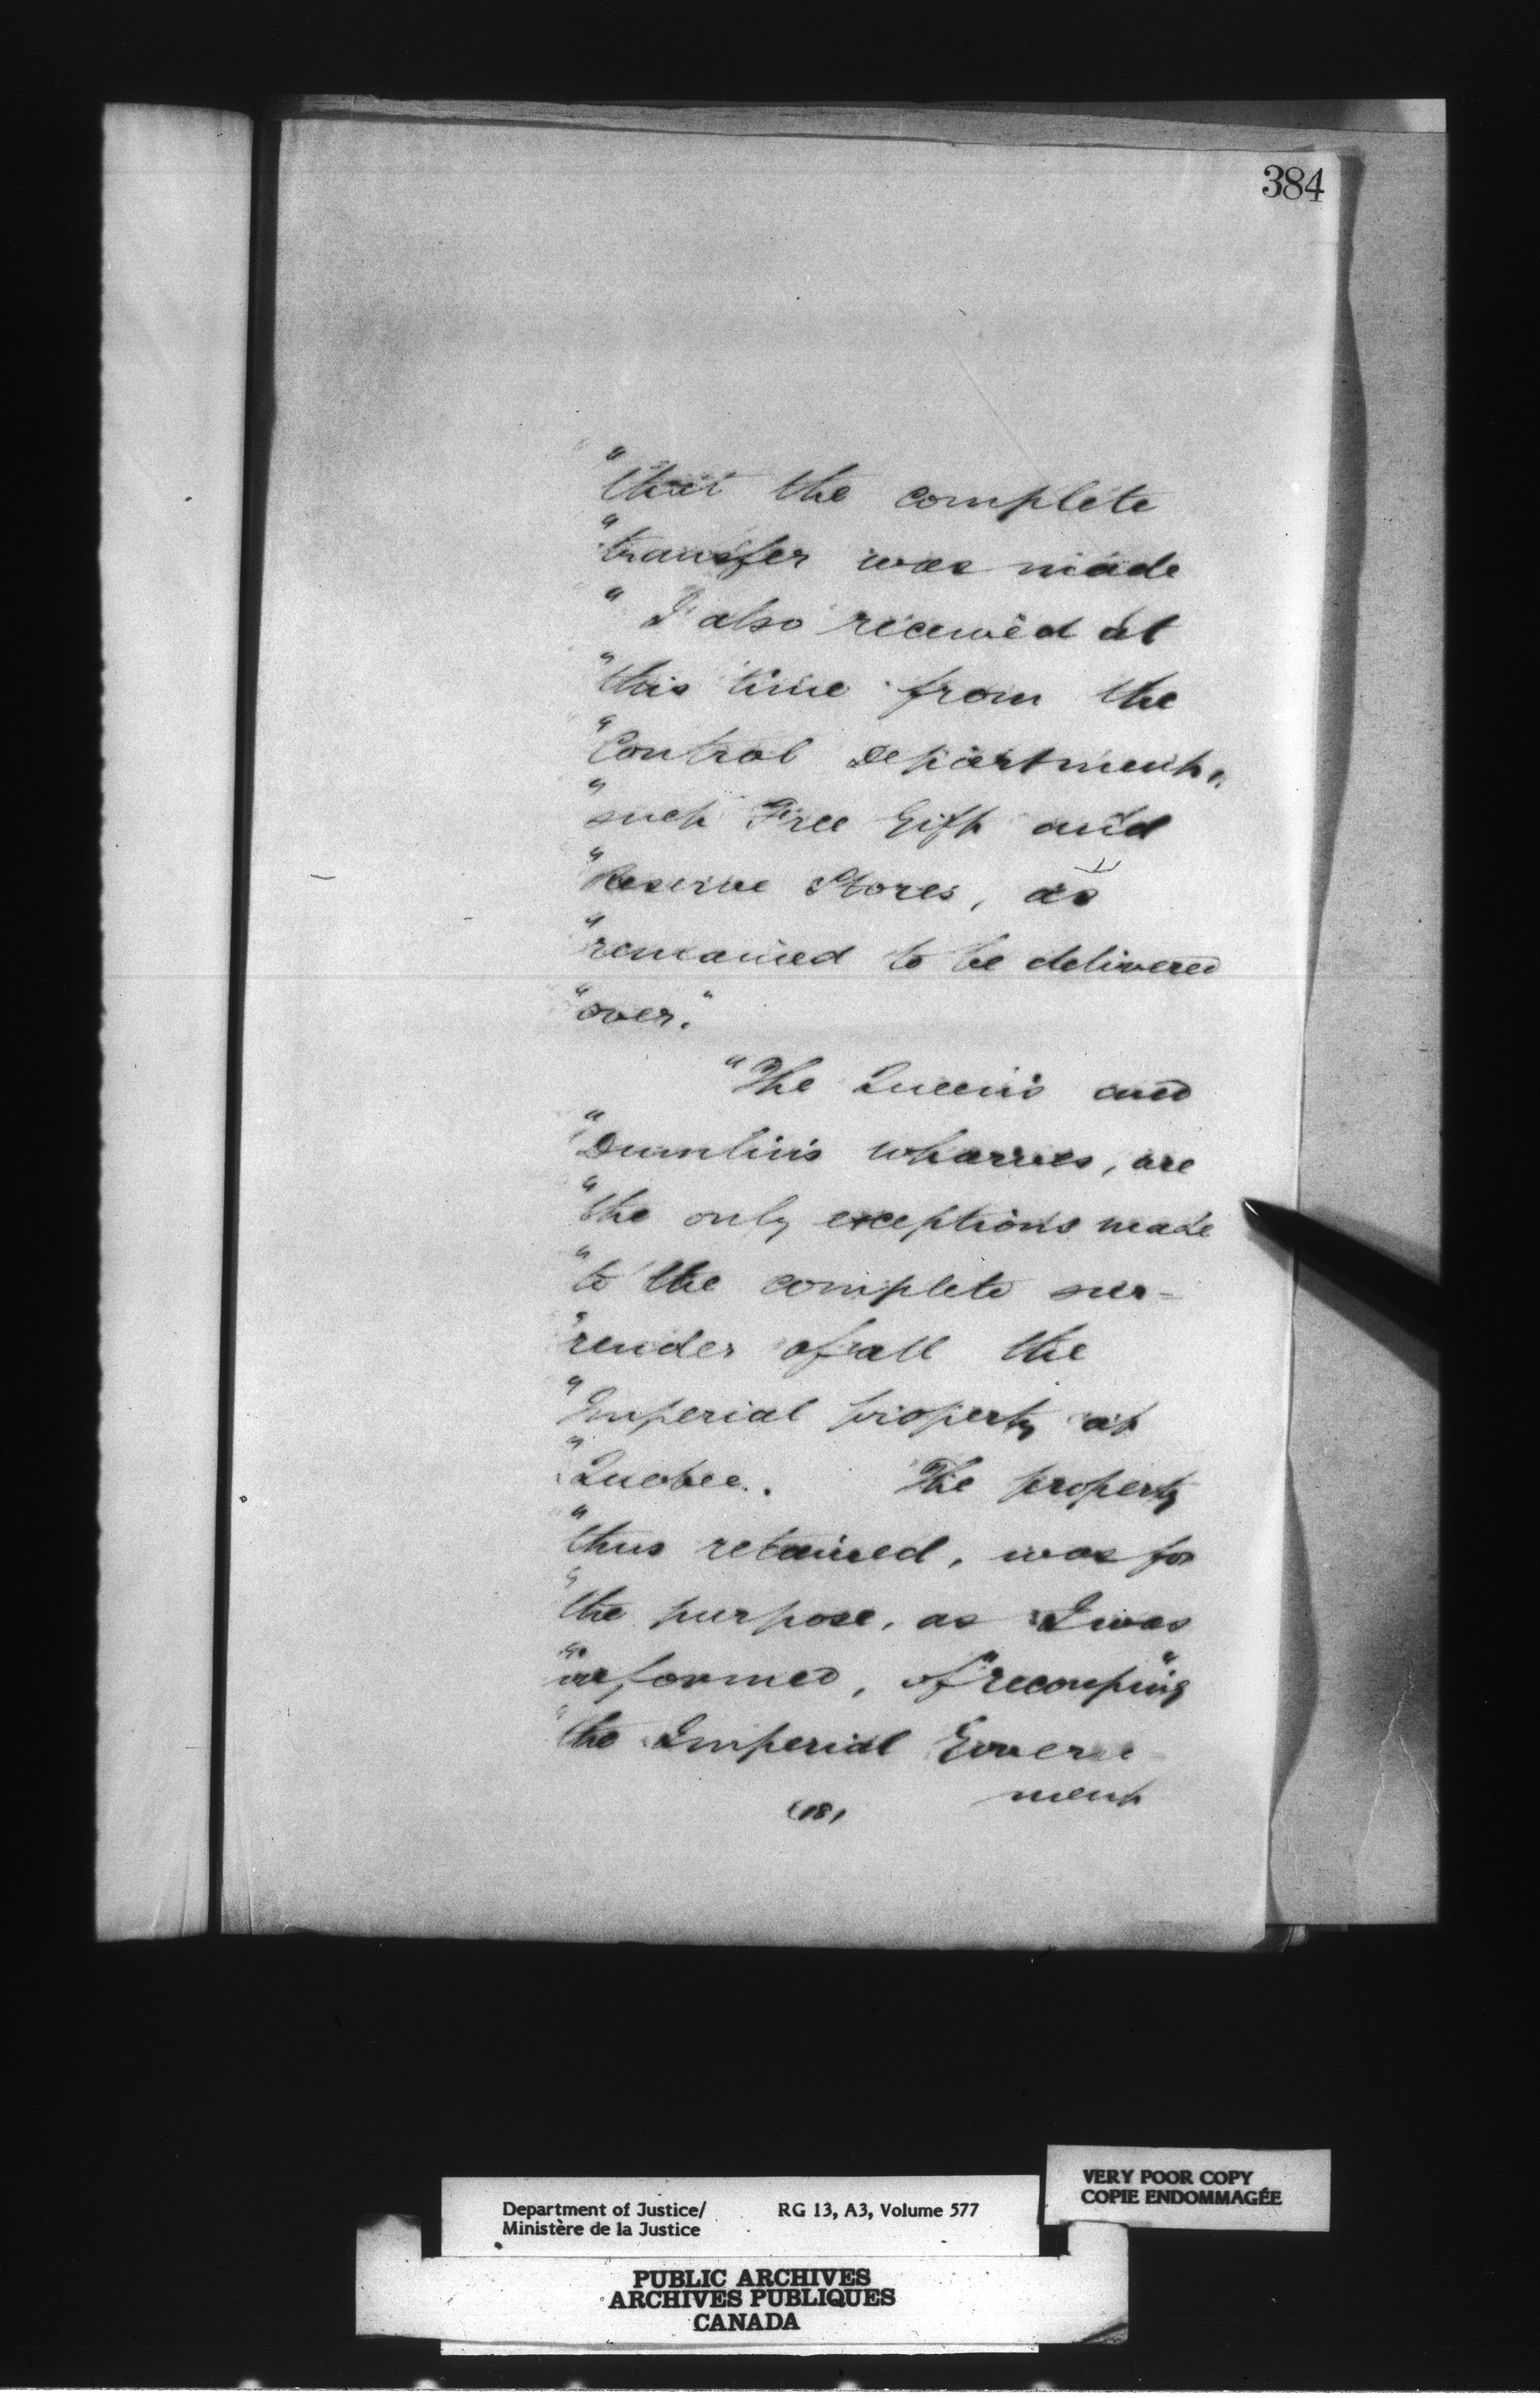 384
"that the complete
"transfer was made
" I also received at
"this time from the
"Control Department,
"such Free Gift and
"Reserve Stores, as
"remained to be delivered
"over."
"The Queen's and
"Dumlin's wharves, are
"the only exceptions made
"to the complete sur-
"render of all the
"Imperial property at
"Quebec. The property
"thus retained, was for
"the purpose, as I was
"informed, of "recouping"
"the Imperial Govern-
ment
(18)
VERY POOR COPY
COPIE ENDOMMAGÉE
Department of Justice/ RG 13, A3, Volume 577
Ministère de la Justice
PUBLIC ARCHIVES
ARCHIVES PUBLIQUES
CANADA